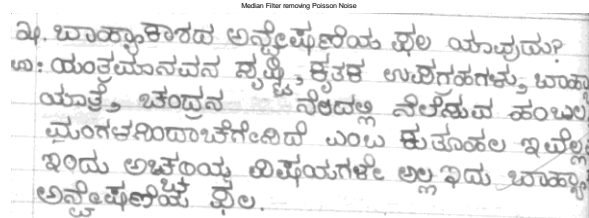 Median Filter removing Poisson Noise
೫. ಬಾಹ್ಯಾಕಾಶದ ಅನ್ವೇಷಣೆಯ ಫಲ ಯಾವುದು?
ಉ: ಯಂತ್ರಮಾನವನ ಸೃಷ್ಟಿ, ಕೃತಕ ಉಪಗ್ರಹಗಳು, ಬಾಹ್ಯಾ
ಯಾತ್ರೆ, ಚಂದ್ರನ ನೆಲದಲ್ಲಿ ನೆಲೆಸುವ ಹಂಬಲ
ಮಂಗಳನಿಂದಾಚೆಗೇನಿದೆ ಎಂಬ ಕುತೂಹಲ ಇವೆಲ್ಲ
ಇಂದು ಅಚ್ಚರಿಯ ವಿಷಯಗಳೇ ಅಲ್ಲ ಇದು ಬಾಹ್ಯಾ
ಅನ್ವೇಷಣೆಯ ಫಲ.